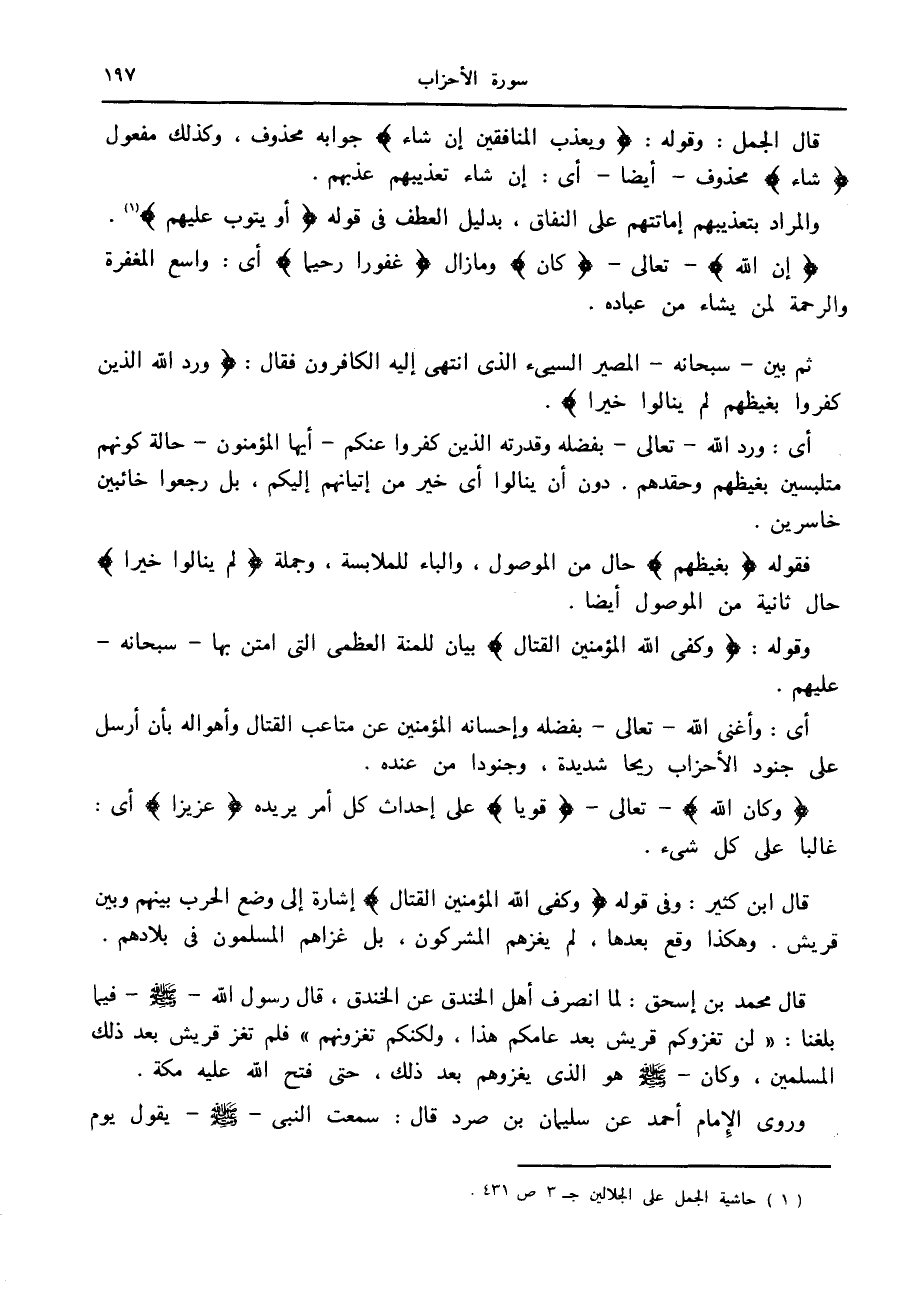 سورة الأحزاب ١٩٧
قال الجمل : وقوله : ﴿ ويعذب المنافقين إن شاء ﴾ جوابه محذوف ، وكذلك مفعول
﴿ شاء ﴾ محذوف – أيضا – أى : إن شاء تعذيبهم عذبهم .
والمراد بتعذيبهم إماتتهم على النفاق ، بدليل العطف فى قوله ﴿ أو يتوب عليهم ﴾(١) .
﴿ إن الله ﴾ – تعالى – ﴿ كان ﴾ ومازال ﴿ غفورا رحيما ﴾ أى : واسع المغفرة
والرحمة لمن يشاء من عباده .
ثم بين – سبحانه – المصير السيىء الذى انتهى إليه الكافرون فقال : ﴿ ورد الله الذين
كفروا بغيظهم لم ينالوا خيرا ﴾ .
أى : ورد الله – تعالى – بفضله وقدرته الذين كفروا عنكم – أيها المؤمنون – حالة كونهم
متلبسين بغيظهم وحقدهم . دون أن ينالوا أى خير من إتيانهم إليكم ، بل رجعوا خائبين
خاسرين .
فقوله ﴿ بغيظهم ﴾ حال من الموصول ، والباء للملابسة ، وجملة ﴿ لم ينالوا خيرا ﴾
حال ثانية من الموصول أيضا .
وقوله : ﴿ وكفى الله المؤمنين القتال ﴾ بيان للمنة العظمى التى امتن بها – سبحانه –
عليهم .
أى : وأغنى الله – تعالى – بفضله وإحسانه المؤمنين عن متاعب القتال وأهواله بأن أرسل
على جنود الأحزاب ريحا شديدة ، وجنودا من عنده .
﴿ وكان الله ﴾ – تعالى – ﴿ قويا ﴾ على إحداث كل أمر يريده ﴿ عزيزا ﴾ أى :
غالبا على كل شىء .
قال ابن كثير : وفى قوله ﴿ وكفى الله المؤمنين القتال ﴾ إشارة إلى وضع الحرب بينهم وبين
قريش . وهكذا وقع بعدها ، لم يغزهم المشركون ، بل غزاهم المسلمون فى بلادهم .
قال محمد بن إسحق : لما انصرف أهل الخندق عن الخندق ، قال رسول الله – ﷺ – فيما
بلغنا : « لن تغزوكم قريش بعد عامكم هذا ، ولكنكم تغزونهم » فلم تغز قريش بعد ذلك
المسلمين ، وكان – ﷺ هو الذى يغزوهم بعد ذلك ، حتى فتح الله عليه مكة .
وروى الإمام أحمد عن سليمان بن صرد قال : سمعت النبى – ﷺ – يقول يوم
( ١ ) حاشية الجمل على الجلالين جـ ٣ ص ٤٣١ .